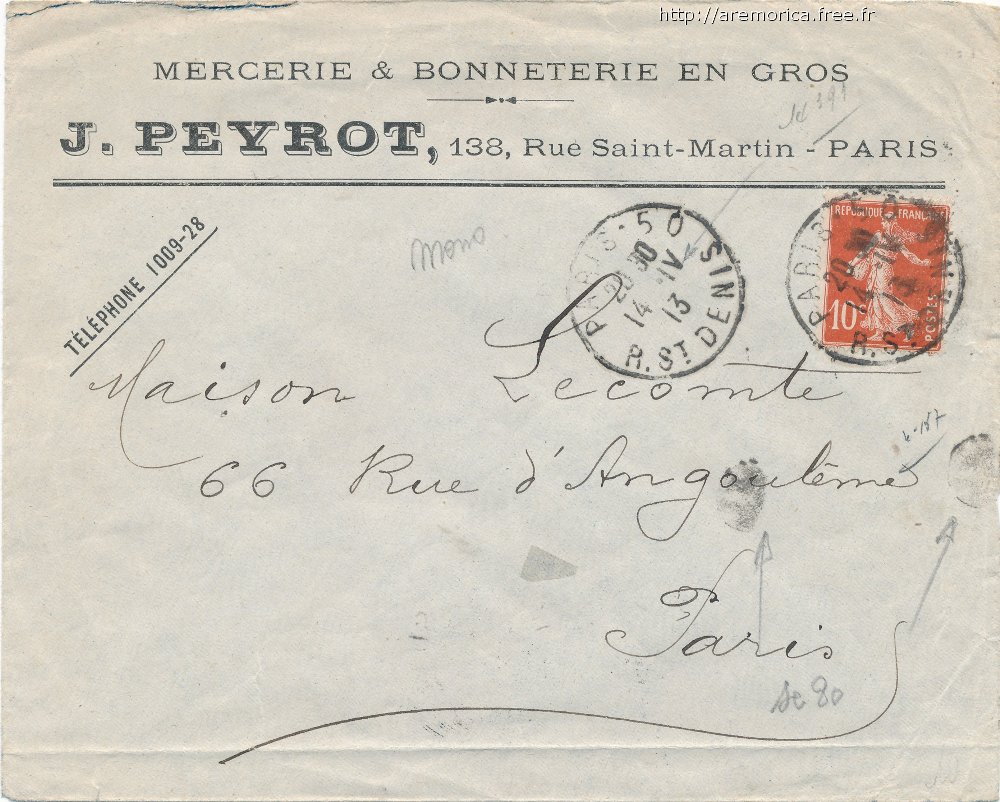 http://aremorica.free.fr
MERCERIE & BONNETERIE EN GROS
J. PEYROT, 138, Rue Saint-Martin - PARIS
TÉLÉPHONE 1009-28
mono
PARIS-50 R. ST DENIS
20 30
14 -IV
13
REPUBLIQUE FRANÇAISE
10
POSTES
PARIS-50 R. ST DENIS
20 30
14 -IV
13
Maison Lecomte
66 Rue d'Angoulême
Paris